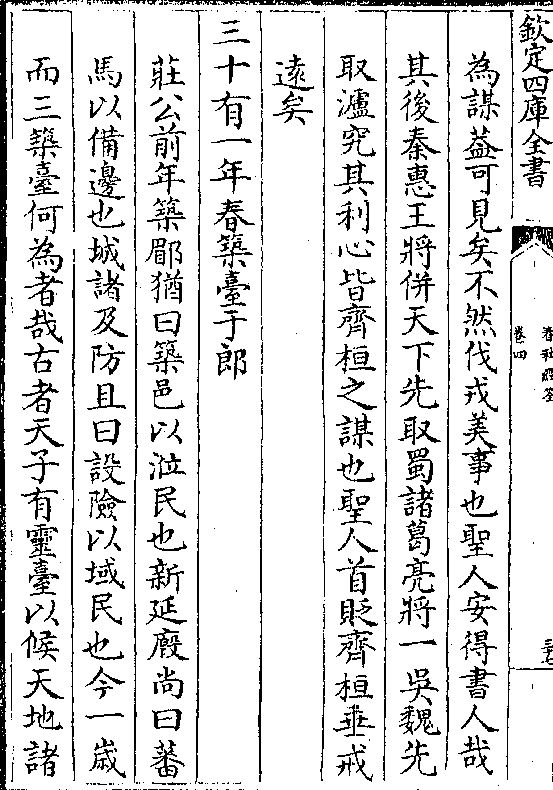 欽定四庫全書
春秋經筌
卷四
三十七
為謀葢可見矣不然伐戎美事也聖人安得書人哉
其後秦惠王將併天下先取蜀諸葛亮將一吳魏先
取瀘究其利心皆齊桓之謀也聖人首貶齊桓垂戒
遠矣
三十有一年春築臺于郎
莊公前年築郿猶曰築邑以涖民也新延廄尚曰蕃
馬以備邊也城諸及防且曰設險以域民也今一歲
而三築臺何為者哉古者天子有靈臺以候天地諸